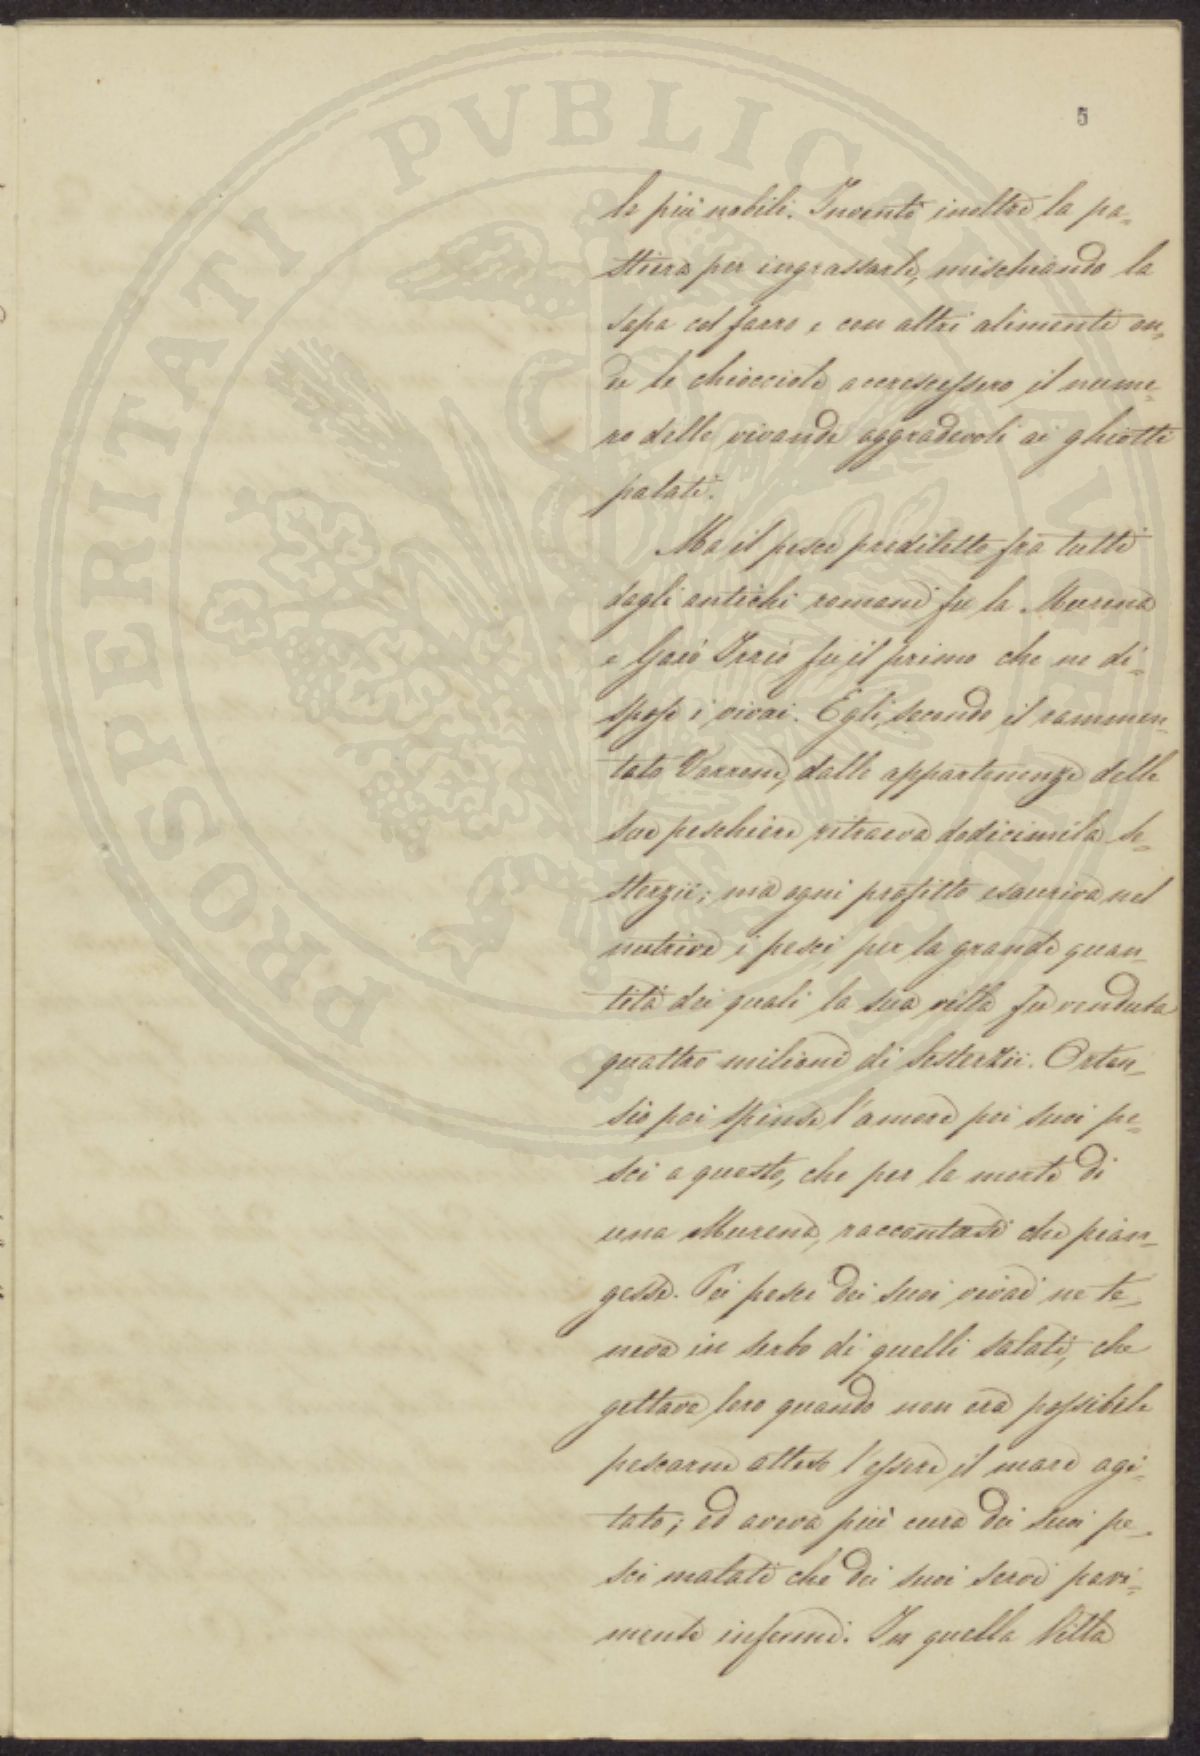 5
le più nobili. Inventò inoltre la pa=
stiera per ingrassarle, mischiando la
sapa col farro e con altri alimenti on=
de le chiocciole accrescessero il nume=
ro delle vivande aggradevoli ai ghiotti
palati.
Ma il pesce prediletto fra tutti
dagli antichi romani fu la Murena
e Gaio Irrio fu il primo che ne di=
spose i vivai. Egli, secondo il rammen=
tato Varrone, dalle appartenenze delle
sue peschiere ritraeva dodicimila se=
sterzii; ma ogni profitto esauriva nel
nutrire i pesci per la grande quan=
tità dei quali la sua villa fu venduta
quattro milioni di sesterzii. Orten=
sio poi spinse l'amore pei suoi pe=
sci a questo, che per la morte di
una Murena, raccontasi che pian=
gesse. Pei pesci dei suoi vivai ne te=
neva in serbo di quelli salati, che
gettava loro quando non era possibile
pescarne atteso l'essere il mare agi=
tato; ed aveva più cura dei suoi pe=
sci malati che dei suoi servi pari=
mente infermi. In quella Villa
PROSPERITATI PVBLICAE AVGENDAE